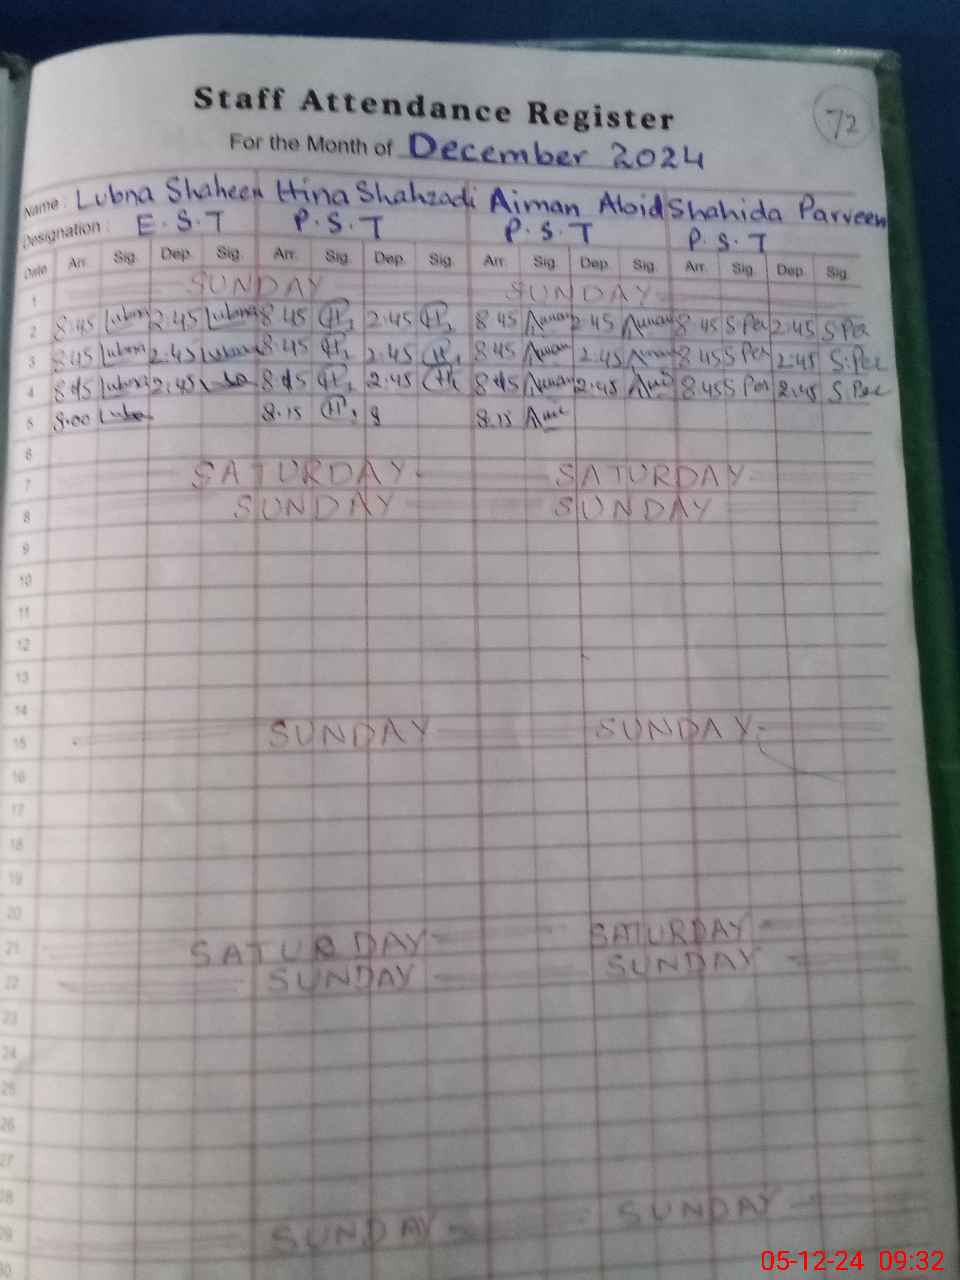 72
Staff Attendance Register
For the Month of December 2024
Name: Lubna Shaheen Hina Shahzadi Aiman Abid Shahida Parveen
Designation: E.S.T P.S.T P.S.T P.S.T
Date Arr. Sig. Dep. Sig. Arr. Sig. Dep. Sig. Arr. Sig. Dep. Sig. Arr. Sig. Dep. Sig.
1 SUNDAY SUNDAY
2 8:45 Lubna 2:45 Lubna 8:45 H 2:45 H 8:45 Aiman 2:45 Aiman 8:45 S Per 2:45 S Per
3 8:45 Lubna 2:45 Lubna 8:45 H 2:45 H 8:45 Aiman 2:45 Aiman 8:45 S Per 2:45 S.Per
4 8:45 Lubna 2:45 8:45 H 2:45 H 8:45 Aiman 2:45 8:45 S Per 2:45 S.Per
5 8:00 8:15 H 8 8:15
6
7 SATURDAY SATURDAY
8 SUNDAY SUNDAY
9
10
11
12
13
14
15 SUNDAY SUNDAY
16
17
18
19
20
21 SATURDAY SATURDAY
22 SUNDAY SUNDAY
23
24
25
26
27
28
29 SUNDAY SUNDAY
30
05-12-24 09:32